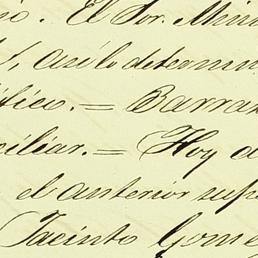 El Sor. Mini
así lo determin
fico. = Barra
ciliar. = Hoy
el anterior sup
Jacinto Gome